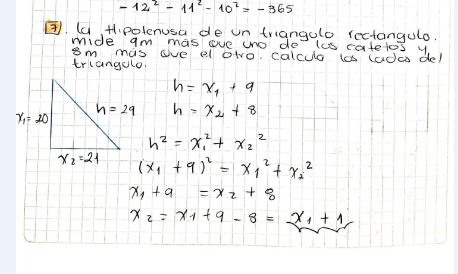 -12² - 11² - 10² = -365
7. la Hipotenusa de un triangulo rectangulo.
mide 9m más que uno de los catetos y
8m más que el otro. calcula los lados del
triangulo.
h = x₁ + 9
h = x₂ + 8
x₁=20
h = 29
x₂=21
h² = x₁² + x₂²
(x₁ + 9)² = x₁² + x₂²
x₁ + 9 = x₂ + 8
x₂ = x₁ + 9 - 8 = x₁ + 1